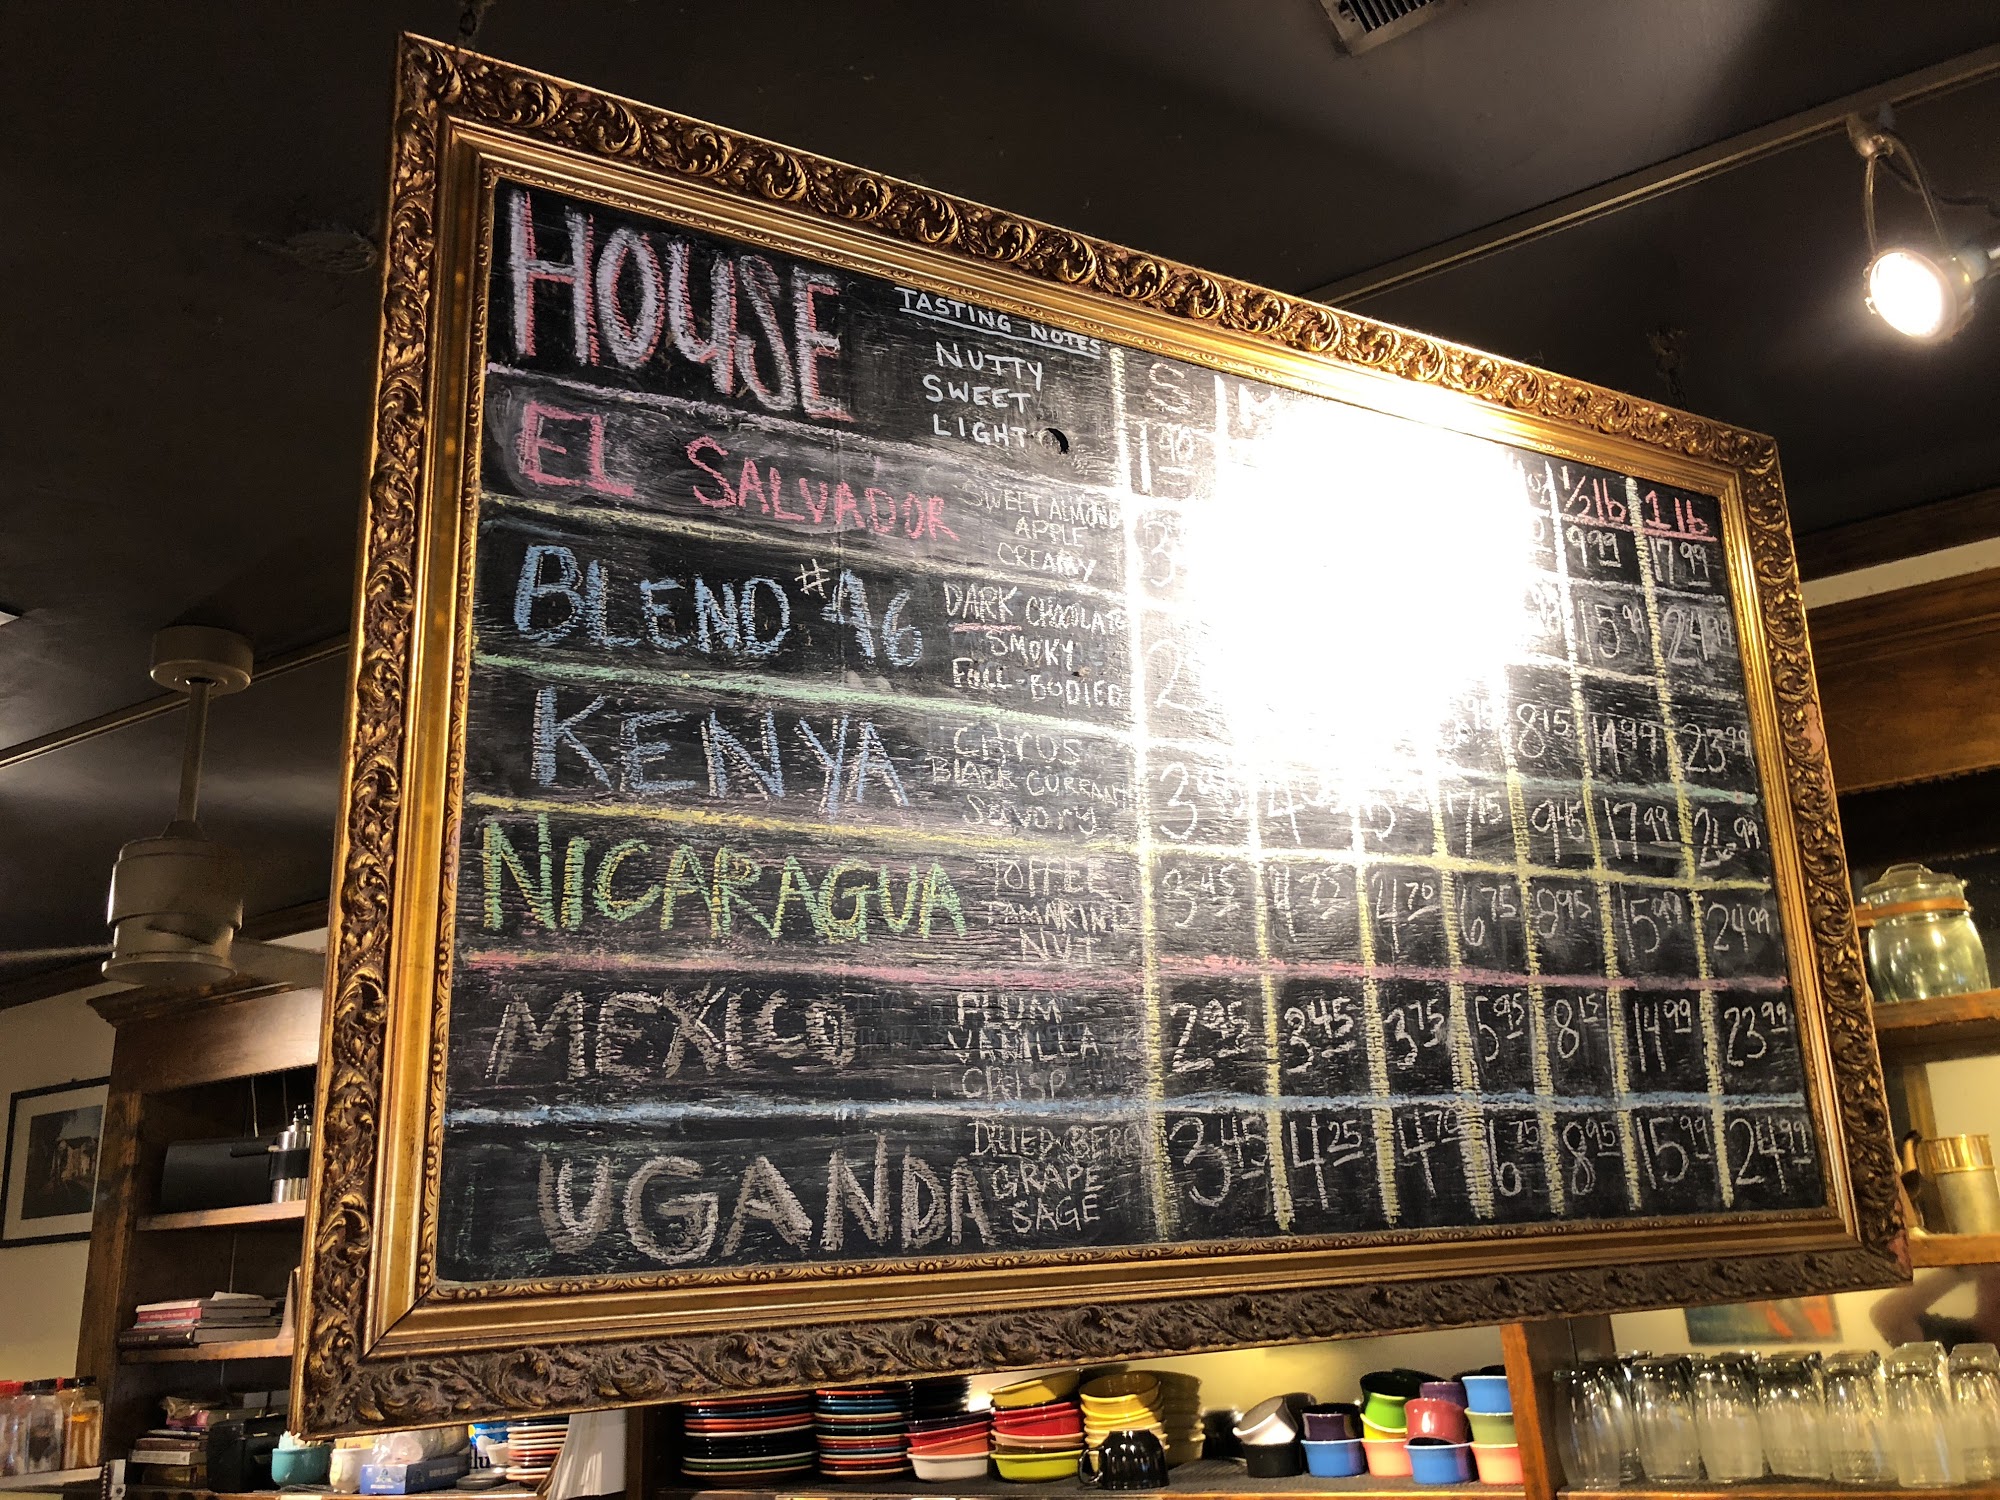 HOUSE
TASTING NOTES
NUTTY
SWEET
LIGHT
S
1 90
1/2 lb 1 lb
9 99 17 99
EL SALVADOR
SWEET ALMOND
APPLE
CREAMY
15 99 24 99
BLEND #46
DARK CHOCOLATE
SMOKY
FULL-BODIED
8 15 14 99 23 99
KENYA
CITRUS
BLACK CURRANT
Savory
7 15 9 45 17 99
NICARAGUA
TOFFEE
TAMARIND
NUT
3 45 4 25 4 70 6 75 8 95 15 99 24 99
MEXICO
PLUM
VANILLA
CRISP
2 95 3 45 3 75 5 95 8 15 14 99 23 99
UGANDA
DRIED BERRY
GRAPE
SAGE
3 45 4 25 4 70 6 75 8 95 15 99 24 99